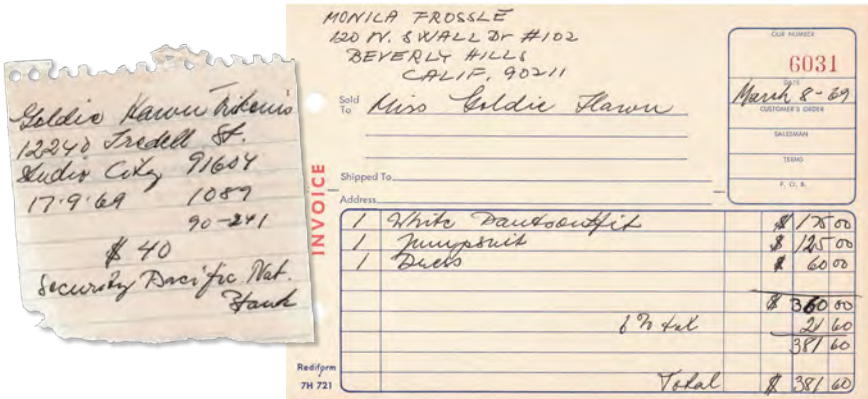 Goldie Hawn Trikonis
12240 Iredell St.
Studio City 91604
17·9·69 1089
90-241
$ 40
Security Pacific Nat.
Bank
MONICA FROSSLE
120 N. SWALL Dr #102
BEVERLY HILLS
CALIF, 90211
OUR NUMBER
6031
DATE
March 8-69
CUSTOMER'S ORDER
SALESMAN
TERMS
F. O. B.
Sold To Miss Goldie Hawn
Shipped To
Address
INVOICE
1 White Pantsoutfit $ 175 00
1 Jumpsuit $ 125 00
1 Dress $ 60 00
$ 360 00
6% tax 21 60
381 60
Total $ 381 60
Rediform
7H 721